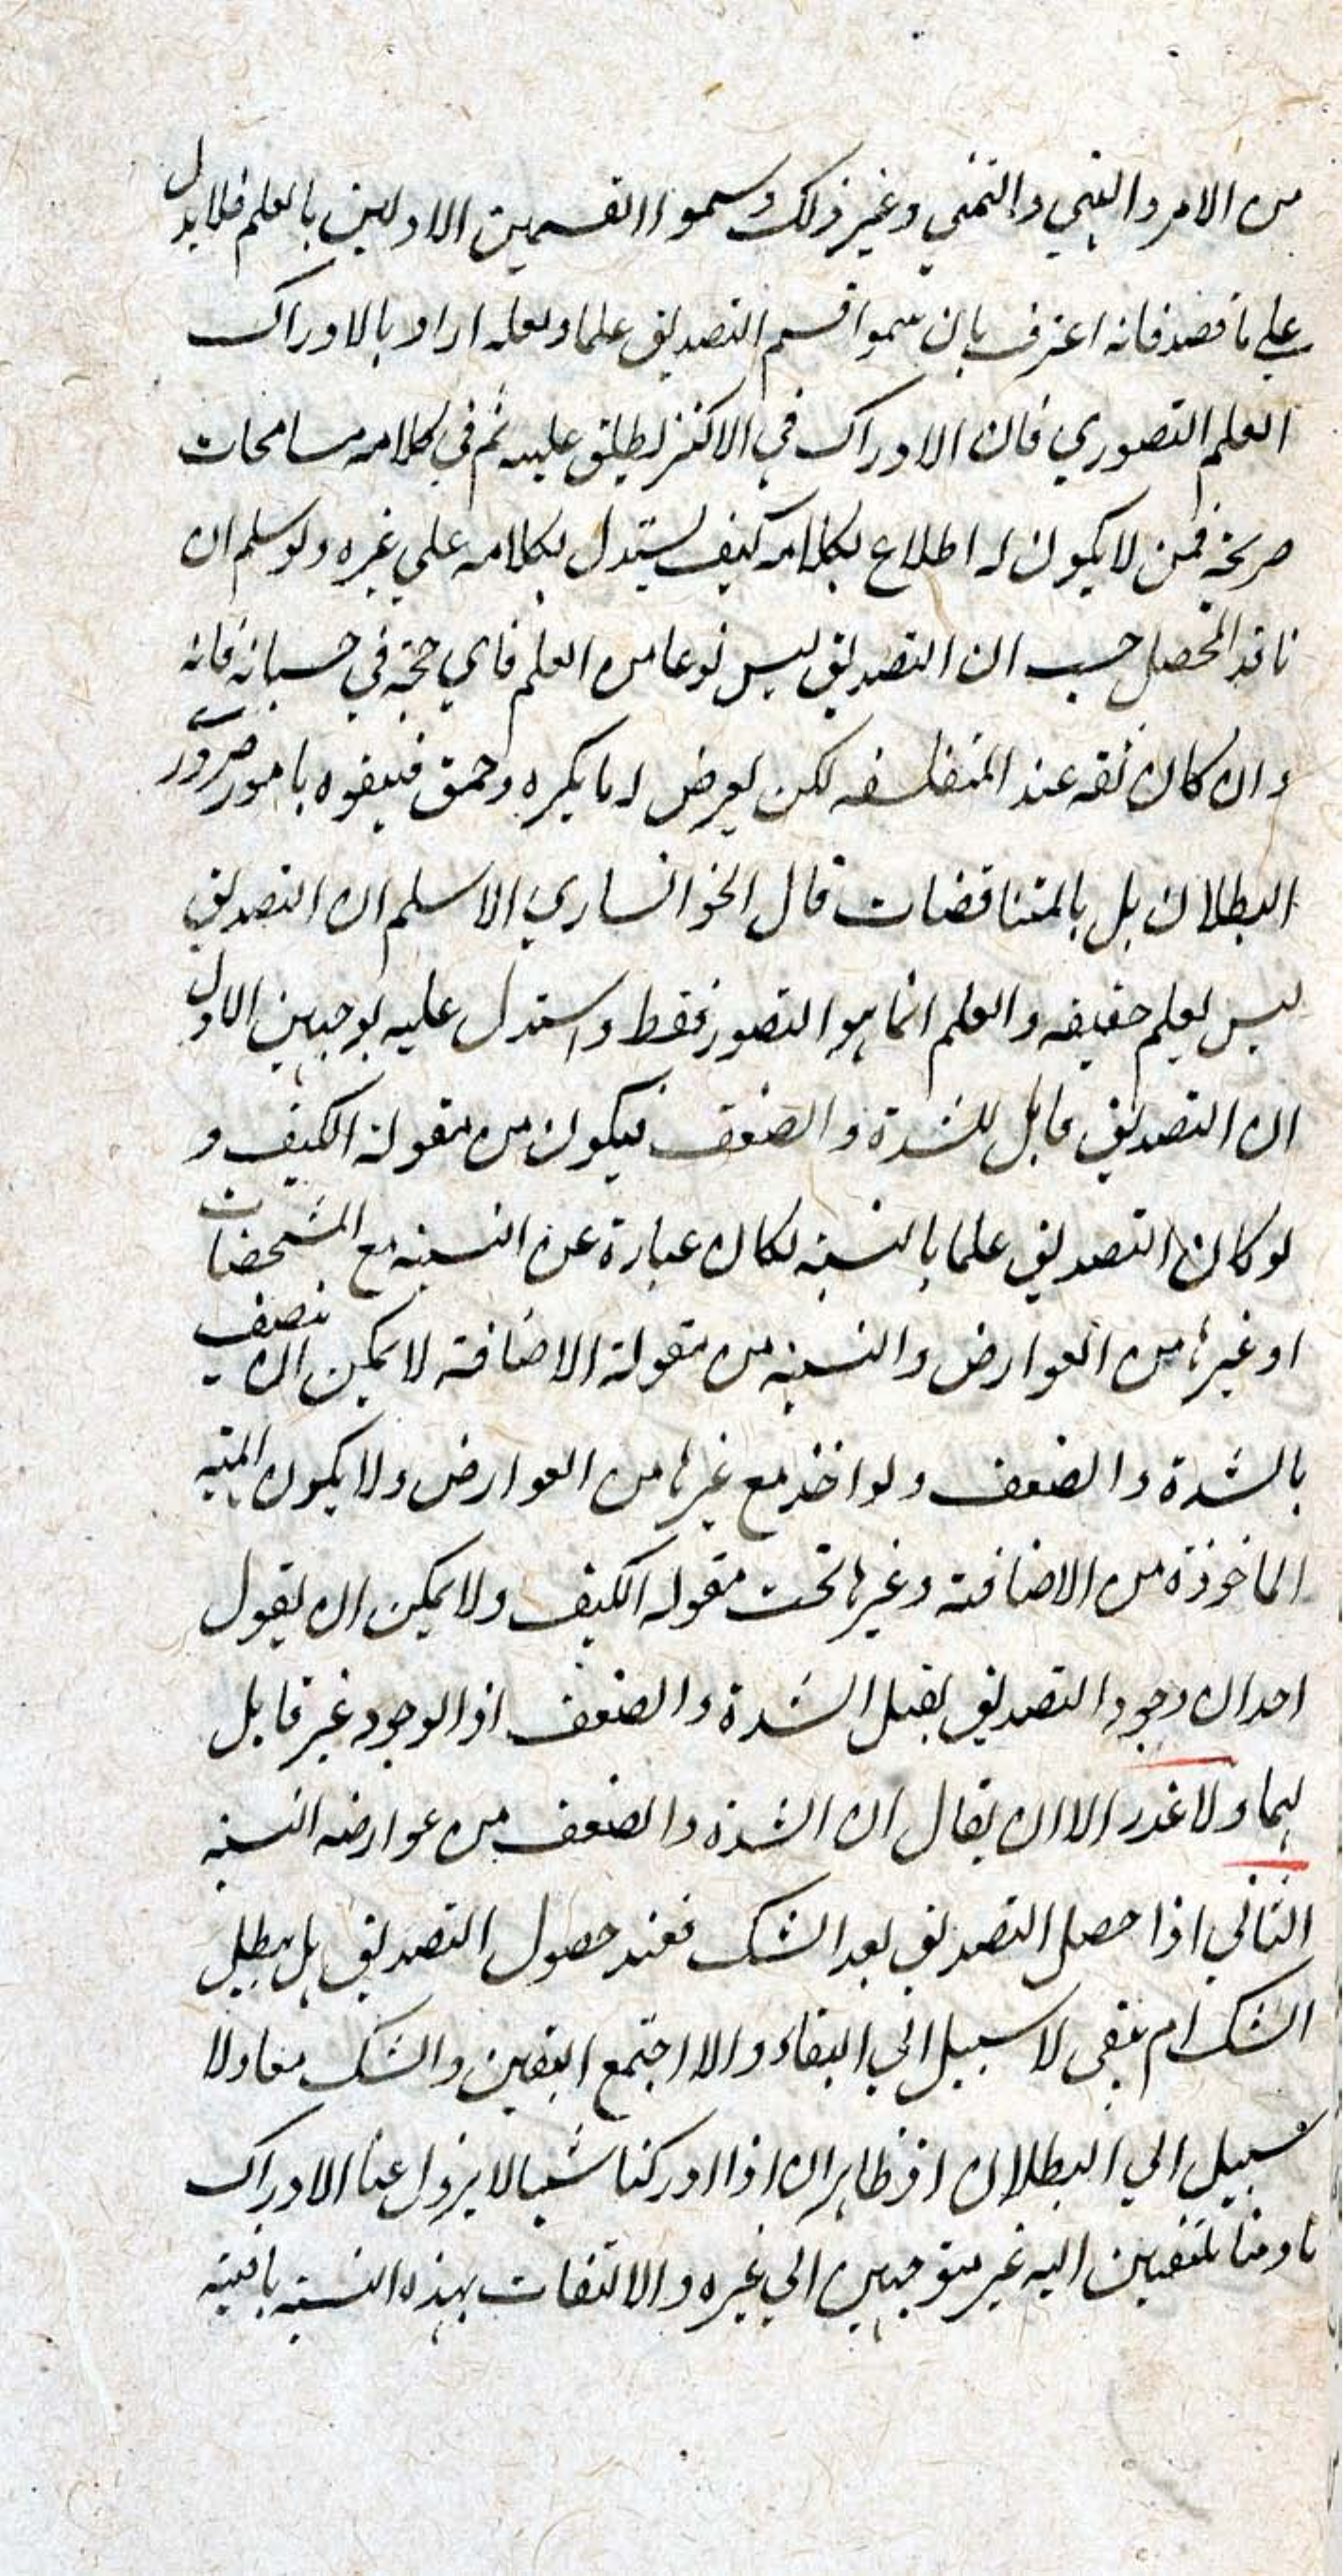 من الامر والنهي والتمني وغير ذلك وسموا القسمين الاولين بالعلم فلا يدل
علي ما قصد فانه اعترف بان سموا قسم التصديق علما ولعله اراد بالادراك
العلم التصوري فان الادراك في الاكثر يطلق عليه ثم في كلامه مسامحات
صريحة فمن لا يكون له اطلاع بكلامه كيف يستدل بكلامه علي غيره ولو سلم ان
ناقد المحصل حسب ان التصديق ليس نوعا من العلم فاي حجة في حسبانه فانه
وان كان ثقه عند المتفلسفه لكن يعرض له ما يكره وحمق فيفوه بامور ضرورے
البطلان بل بالمتناقضات قال الخوانساري الاسلم ان التصديق
ليس بعلم حقيقه والعلم انما هو التصور فقط واستدل عليه بوجهين الاول
ان التصديق قابل للشدة والضعف فيكون من مقولة الكيف و
لو كان التصديق علما بالنسبة لكان عبارة عن النسبة مع المشخصات
او غيرها من العوارض والنسبة من مقولة الاضافة لا يمكن ان يتصف
بالشدة والضعف ولو اخذ مع غيرها من العوارض ولا يكون
الماخوذة من الاضافة وغيرها تحت مقوله الكيف ولا يمكن ان يقول
احد ان وجود التصديق يقبل الشدة والضعف اذ الوجود غير قابل
لهما ولا عذر الا ان يقال ان الشدة والضعف من عوارضه النسبة
الثاني اذا حصل التصديق بعد الشك فعند حصول التصديق هل يبطل
الشك ام يبقى لا سبيل الي البقاء والا اجتمع اليقين والشك معا ولا
سبيل الي البطلان اذ ظاهر ان اذا ادركنا شيا لا يزول عنا الادراك
ما دمنا ملتفين اليه غير متوجهين الي غيره والالتفات بهذه النسبة باقية